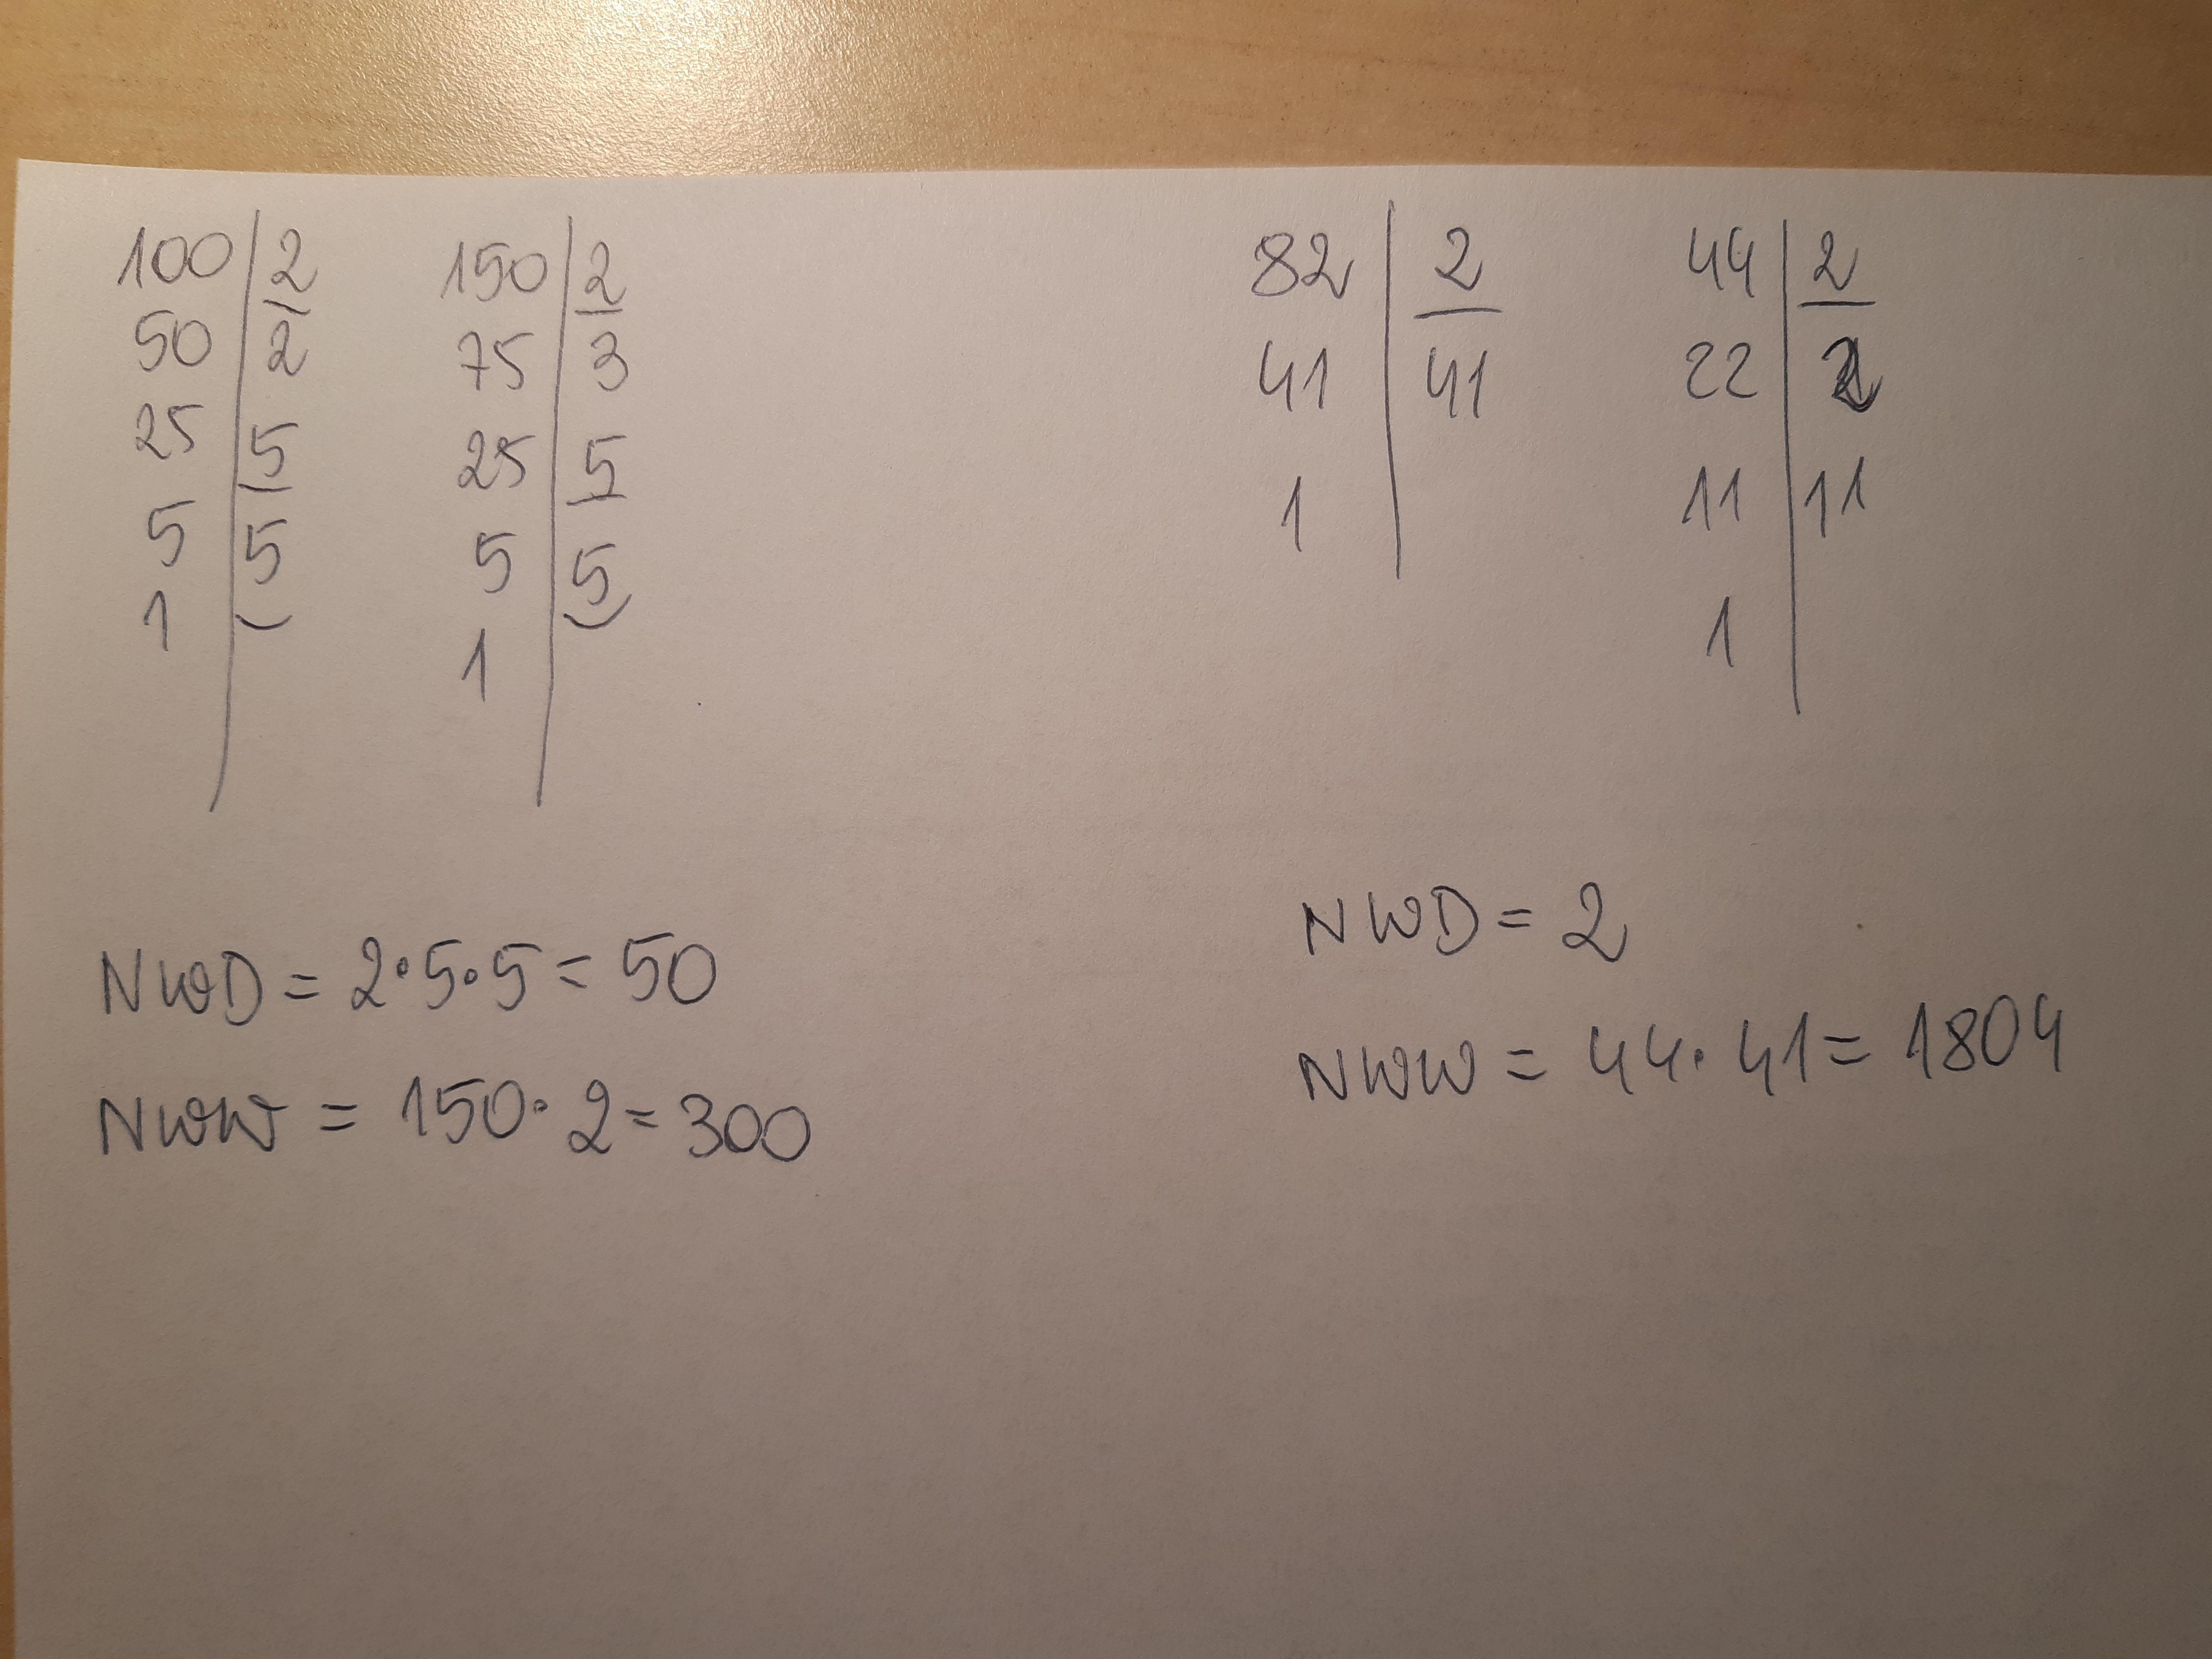 100 | 2
50 | 2
25 | 5
5 | 5
1
150 | 2
75 | 3
25 | 5
5 | 5
1
NWD = 2·5·5 = 50
NWW = 150·2 = 300
82 | 2
41 | 41
1
44 | 2
22 | 2
11 | 11
1
NWD = 2
NWW = 44·41 = 1804